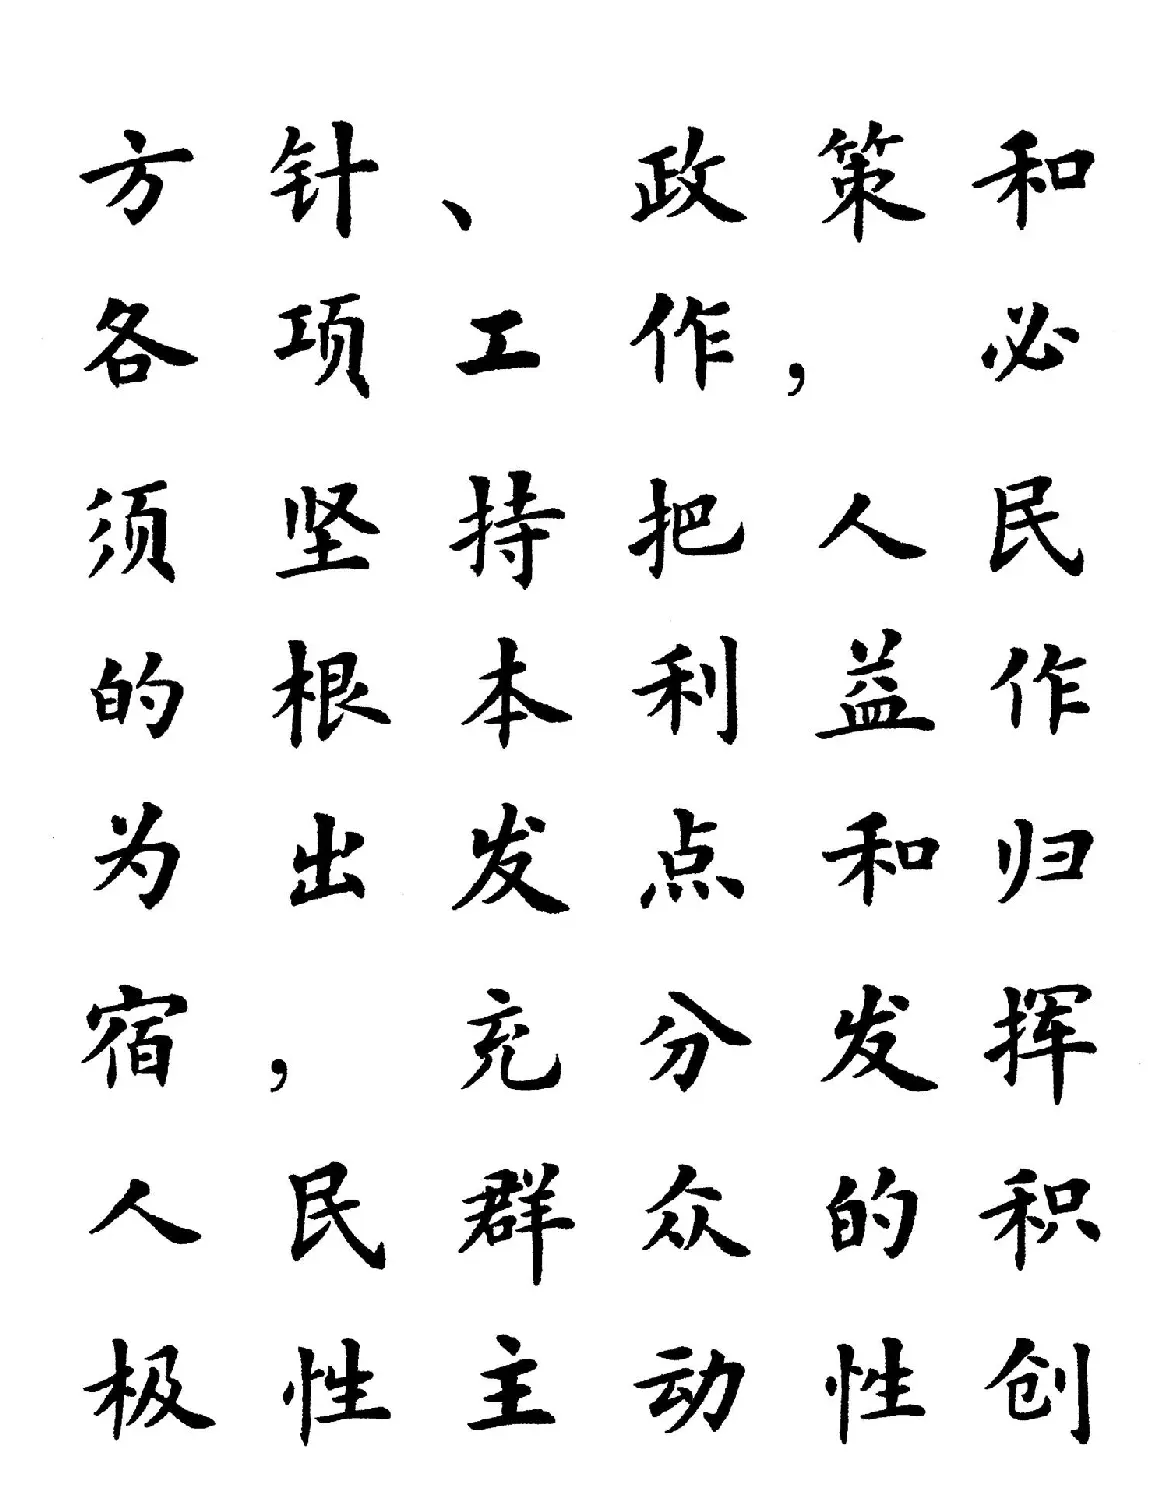 方针、政策和
各项工作，必
须坚持把人民
的根本利益作
为出发点和归
宿，充分发挥
人民群众的积
极性主动性创